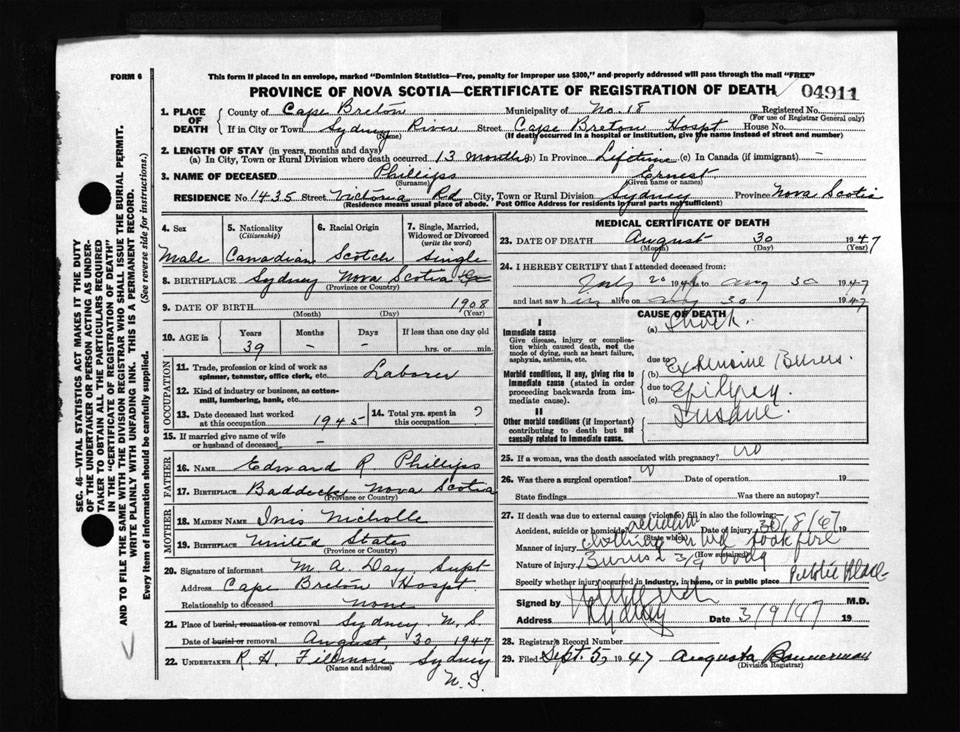 FORM 6
This form if placed in an envelope, marked "Dominion Statistics—Free, penalty for improper use $300," and properly addressed will pass through the mail "FREE"
PROVINCE OF NOVA SCOTIA—CERTIFICATE OF REGISTRATION OF DEATH
04911
1. PLACE OF DEATH
County of Cape Breton Municipality of No. 18 Registered No.
(For use of Registrar General only)
If in City or Town Sydney River Street Cape Breton Hospt House No.
(Name) (If death occurred in a hospital or institution, give the name instead of street and number)
2. LENGTH OF STAY (in years, months and days)
(a) In City, Town or Rural Division where death occurred 13 months (b) In Province Lifetime (c) In Canada (if immigrant) -
3. NAME OF DECEASED Phillips Ernest
(Surname) (Given name or names)
RESIDENCE No. 1435 Street Victoria Rd City, Town or Rural Division Sydney Province Nova Scotia
(Residence means usual place of abode. Post Office Address for residents in rural parts not sufficient)
4. Sex
Male
5. Nationality
(Citizenship)
Canadian
6. Racial Origin
Scotch
7. Single, Married, Widowed or Divorced
(write the word)
Single
8. BIRTHPLACE Sydney Nova Scotia
(Province or Country)
9. DATE OF BIRTH 1908
(Month) (Day) (Year)
10. AGE in
Years Months Days If less than one day old
39 - - hrs. or min.
OCCUPATION
11. Trade, profession or kind of work as spinner, teamster, office clerk, etc. Laborer
12. Kind of industry or business, as cotton-mill, lumbering, bank, etc.
13. Date deceased last worked at this occupation 1945
14. Total yrs. spent in this occupation ?
15. If married give name of wife or husband of deceased -
FATHER
16. NAME Edward R. Phillips
17. BIRTHPLACE Baddeck Nova Scotia
(Province or Country)
MOTHER
18. MAIDEN NAME Inis Nicholle
19. BIRTHPLACE United States
(Province or Country)
20. Signature of informant M. A. Day, Supt
Address Cape Breton Hospt
Relationship to deceased None
21. Place of burial, cremation or removal Sydney N.S.
Date of burial or removal August, 30 1947
22. UNDERTAKER R. H. Fillmore Sydney
(Name and address) N.S.
MEDICAL CERTIFICATE OF DEATH
23. DATE OF DEATH August 30 1947
(Month) (Day) (Year)
24. I HEREBY CERTIFY that I attended deceased from:
20 194 to Aug 30 1947
and last saw h alive on Aug 30 1947
CAUSE OF DEATH
I
Immediate cause
Give disease, injury or complication which caused death, not the mode of dying, such as heart failure, asphyxia, asthenia, etc.
(a) Shock.
due to
Extensive Burns.
Morbid conditions, if any, giving rise to immediate cause (stated in order proceeding backwards from immediate cause).
due to
(c) Epilepsy
II
Other morbid conditions (if important) contributing to death but not causally related to immediate cause.
Insane.
25. If a woman, was the death associated with pregnancy? no
26. Was there a surgical operation? Date of operation 19
State findings Was there an autopsy?
27. If death was due to external causes (violence) fill in also the following:
Accident, suicide or homicide? accident Date of injury 30/8/47 19
(State which)
Manner of injury clothing on bed took fire
(How sustained)
Nature of injury Burns 3/4 body
Specify whether injury occurred in industry, in home, or in public place Public Place
Signed by M.D.
Address Sydney Date 3/9/47 19
28. Registrar's Record Number
29. Filed Sept. 5, 1947 Augusta Bannerman
(Division Registrar)
SEC. 46—VITAL STATISTICS ACT MAKES IT THE DUTY
OF THE UNDERTAKER OR PERSON ACTING AS UNDERTAKER TO OBTAIN ALL THE PARTICULARS REQUIRED
IN THE "CERTIFICATE OF REGISTRATION OF DEATH"
AND TO FILE THE SAME WITH THE DIVISION REGISTRAR WHO SHALL ISSUE THE BURIAL PERMIT.
WRITE PLAINLY WITH UNFADING INK. THIS IS A PERMANENT RECORD.
Every item of information should be carefully supplied. (See reverse side for instructions.)